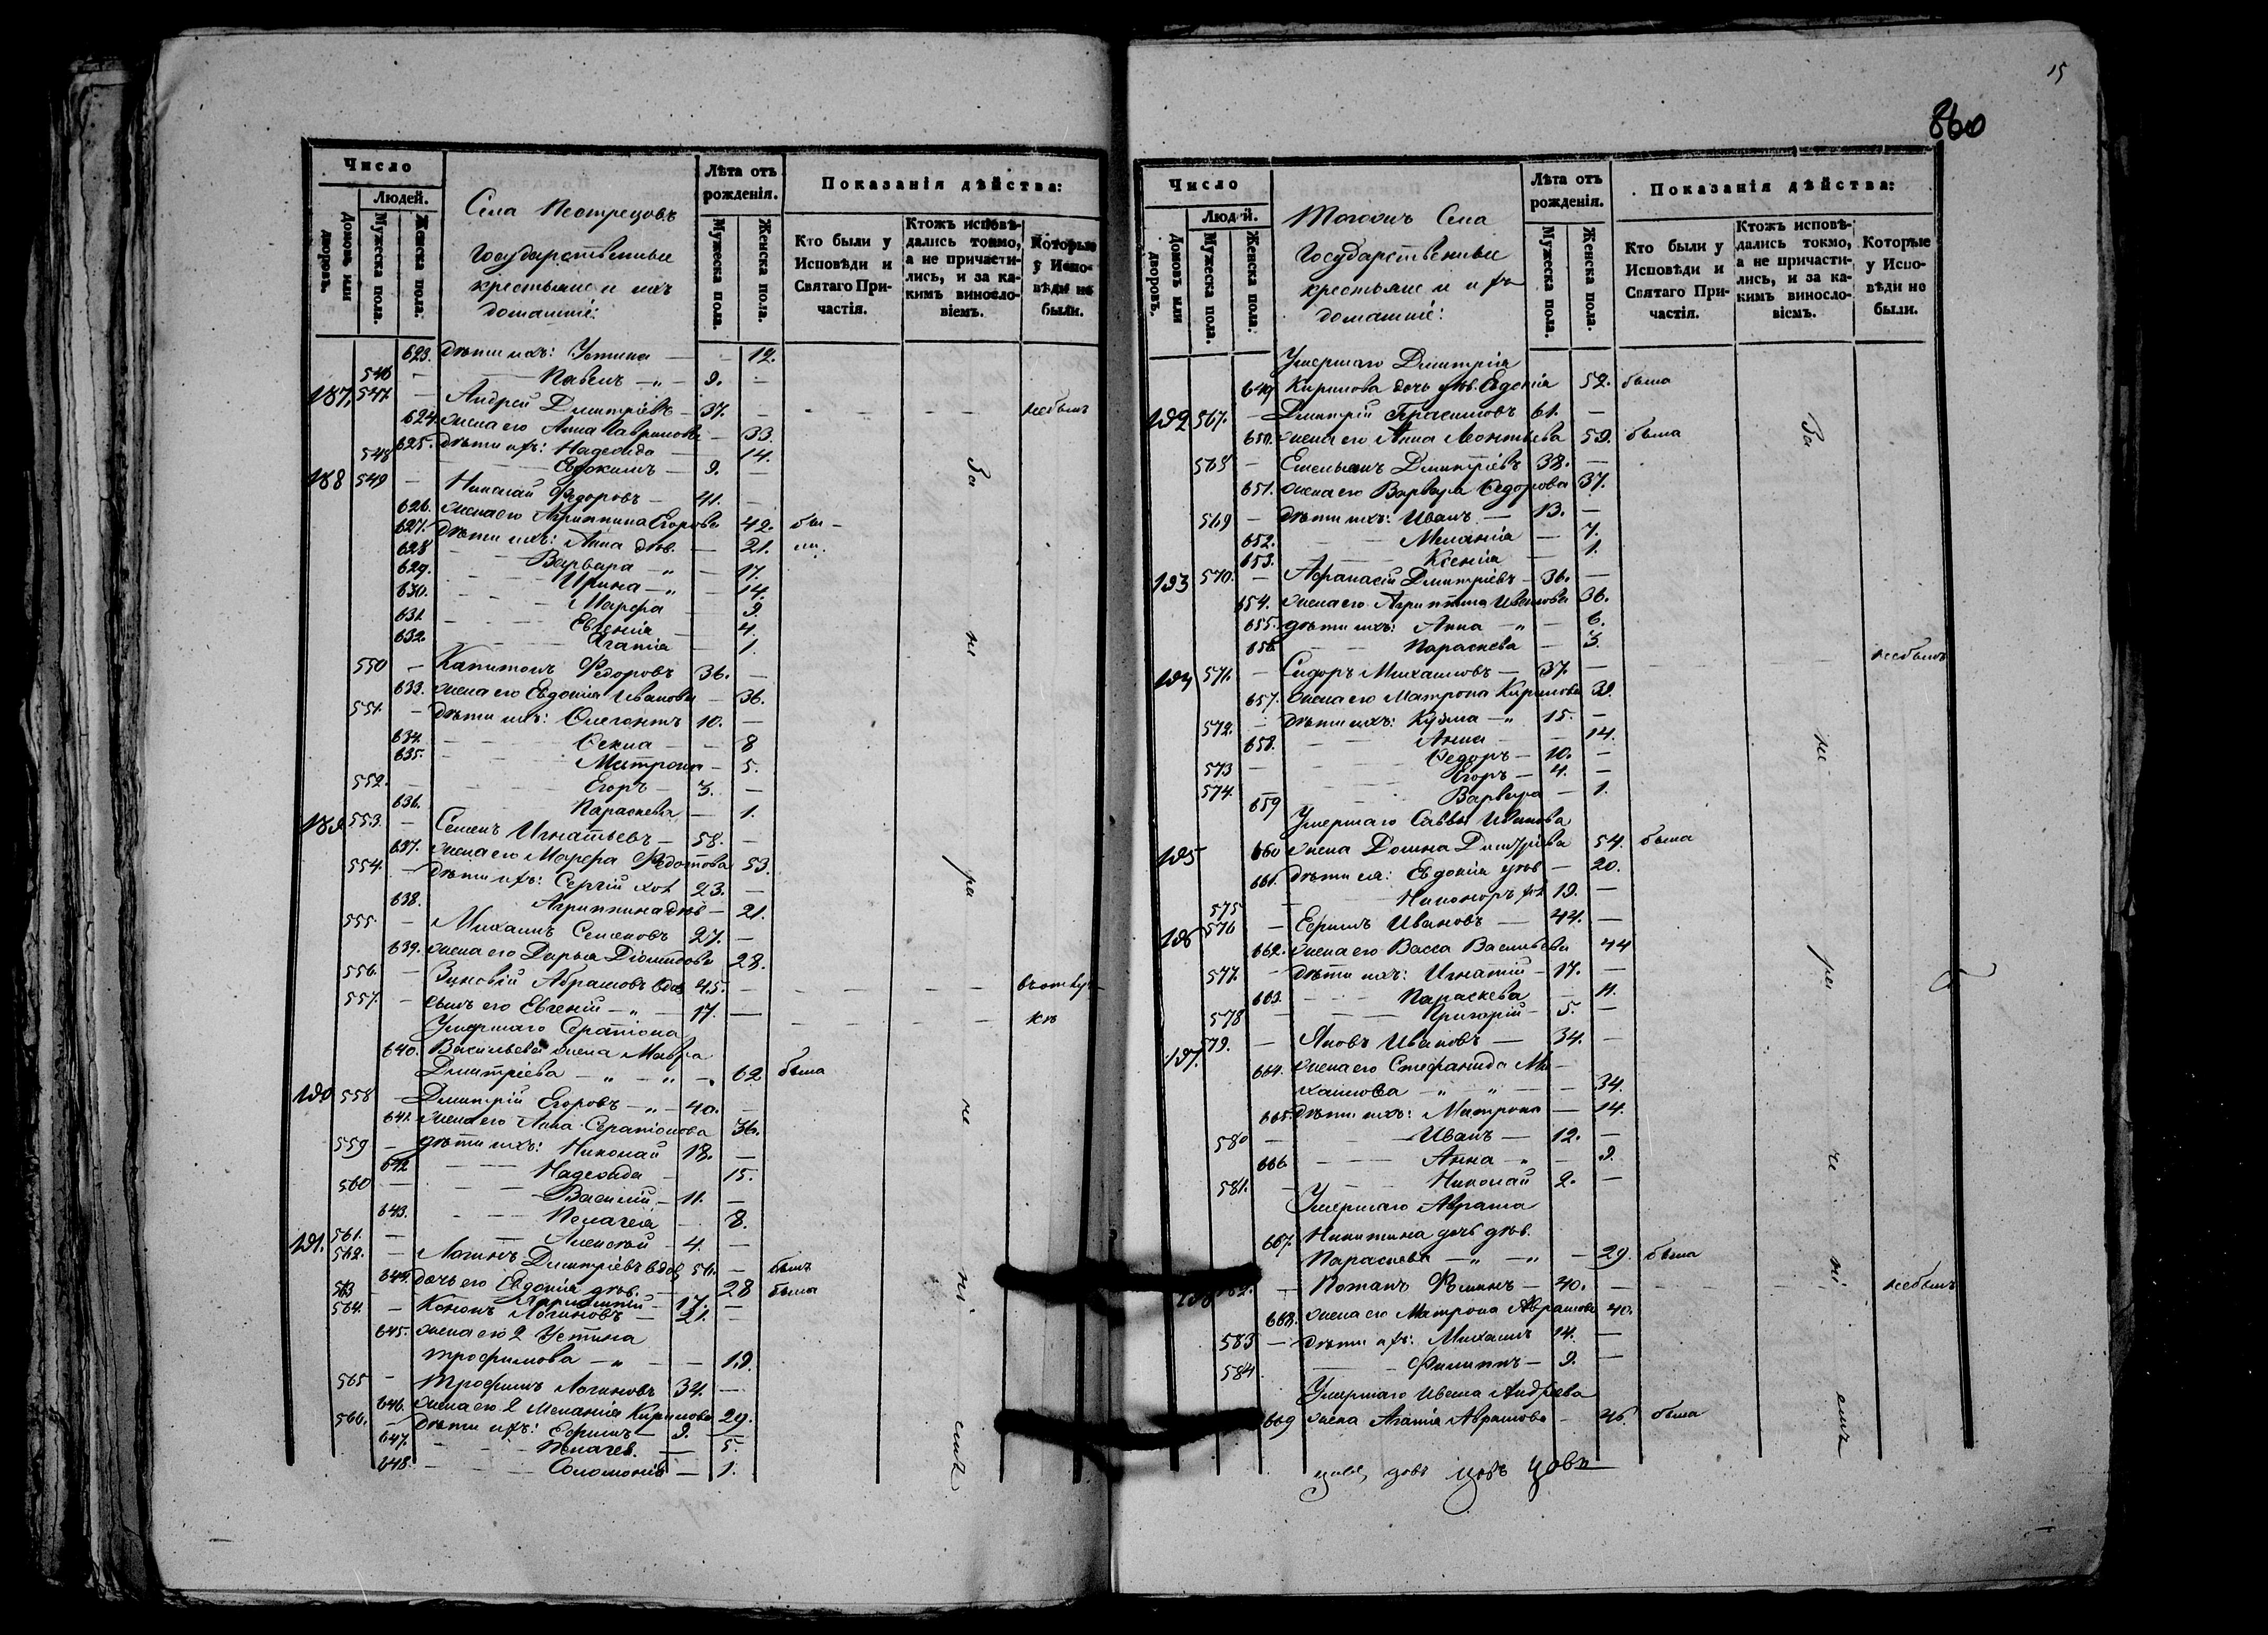 15
860
Число
Людей.
Домовъ или дворовъ.
Мужеска пола.
Женска пола.
Села
Государственные
крестьяне и ихъ
домашніе:
Лѣта отъ рожденія.
Мужеска пола.
Женска пола.
Показанія дѣйства:
Кто были у Исповѣди и Святаго Причастія.
Ктожъ исповѣдались токмо, а не причастились, и за какимъ винословіемъ.
Которые у Исповѣди не были.
623. дѣти ихъ: Устина — - 12.
546 — Павелъ -„- 9. -
187. 547. — Андрей Дмитріевъ - 37. - небылъ
624. жена его Анна Гаврилова - 33.
625. дѣти ихъ: Надежда — - 14.
548 — Евдокимъ — 9.
188 549 — Николай Ѳедоровъ — 41. -
626. жена его Агриппина Егорова 42. бы-
627. дѣти ихъ: Анна дѣв. — 21. ли.
628 — Варвара -„- 17.
629. — Ирина -„- 14.
630. — Марѳа 9
631 — Евгенія — 4.
632. — Агапія — 1.
550 — Капитонъ Ѳедоровъ 36. —
633. жена его Евдокія Иванова — 36.
551. — дѣти ихъ: 10. —
634. — Ѳекла — 8
635. — Матрона — 5.
552. — Егоръ — 3. —
636. — Параскева — 1.
189 553. — Семенъ Игнатьевъ — 58. —
637. жена его Марѳа Ѳедотова 53.
554. — дѣти ихъ: Сергій хол 23. —
638. Агриппина дѣв — 21.
555. — Михаилъ Семеновъ 27. —
639. жена его Дарья Діомидова 28.
556. — Зиновій Абрамовъ вдов 45. — въ отлуч-
557. — сынъ его Евгеній -„- 17. — кѣ
Умершаго Серапіона
640. Васильева жена Мавра
Дмитріева -„- -„- 62 была
190 558 — Дмитрій Егоровъ -„- 40. —
641. жена его Анна Серапіонова 36.
559 — дѣти ихъ: Николай 18. —
642 — Надежда — 15.
560 — Василій — 11. —
643. — Пелагея — 8.
561. — Алексѣй — 4. —
191. 562. — Логинъ Дмитріевъ вдов 56. — былъ
644. дочь его Евдокія дѣв. — 28 была
563 — 17. —
564. — Кононъ Логиновъ — 21. —
645. жена его 2 Устина
Трофимова -„- — 19.
565 — Трофимъ Логиновъ 34. —
646. жена его 2 Меланія Кирилова 29.
566. — дѣти ихъ: Ефимъ — 9. —
647. — Пелагея. — 5.
648. — Соломонія — 1.
За не ра че ні емъ
Число
Людей.
Домовъ или дворовъ.
Мужеска пола.
Женска пола.
Тогожъ Села
Государственные
крестьяне и ихъ
домашніе:
Лѣта отъ рожденія.
Мужеска пола.
Женска пола.
Показанія дѣйства:
Кто были у Исповѣди и Святаго Причастія.
Ктожъ исповѣдались токмо, а не причастились, и за какимъ винословіемъ.
Которые у Исповѣди не были.
Умершаго Дмитрія
649 Кирилова дочь дѣв. Евдокія 52. была
192 567. — Дмитрій Герасимовъ 61. —
650. жена его Анна Леонтьева 59. была
568 — Емельянъ Дмитріевъ 38. —
651. жена его Варвара Ѳедорова 37.
569 — дѣти ихъ: Иванъ — 13. —
652. — Меланія — 7.
653. — Ксенія — 1.
193 570. — Афанасій Дмитріевъ — 36. —
654. жена его Агриппина Иванова 36.
655. дѣти ихъ: Анна -„- 6.
656 — Параскева — 3.
194 571. — Сидоръ Михаиловъ — 37. — небылъ
657. жена его Матрона Кирилова 39.
572. — дѣти ихъ: Кузма -„ 15. —
658. — Анна — 14.
573 — Ѳедоръ — 10. —
574. — Егоръ — 4. —
659 — Варвара — 1.
Умершаго Саввы Иванова
195 660 жена Домна Дмитріева 54. была
661. дѣти ея: Евдокія дѣв — 20.
575 — Никоноръ хол 19. —
196 576 — Ефимъ Ивановъ — 44. —
662. жена его Васса Васильева 44
577. — дѣти ихъ: Игнатій — 17. —
663. — Параскева — 11.
578 — Григорій — 5. —
197. 579. — Яковъ Ивановъ — 34. —
664. жена его Стефанида Ми-
хаилова „ „ — 34.
665. дѣти ихъ: Матрона — 14.
580 — Иванъ — 12. —
666 — Анна -„- 9.
581. — Николай 2. —
Умершаго Абрама
667. Никитина дочь дѣв.
Параскева -„- -„- 29. была
198 582. — Романъ — 40. — небылъ
668. жена его Матрона Абрамова 40.
583 — дѣти ихъ: Михаилъ 14. —
584 — Филиппъ — 9. —
Умершаго Ивана Андреева
669 жена Агапія Абрамова — 46. была
За не ра че ні емъ